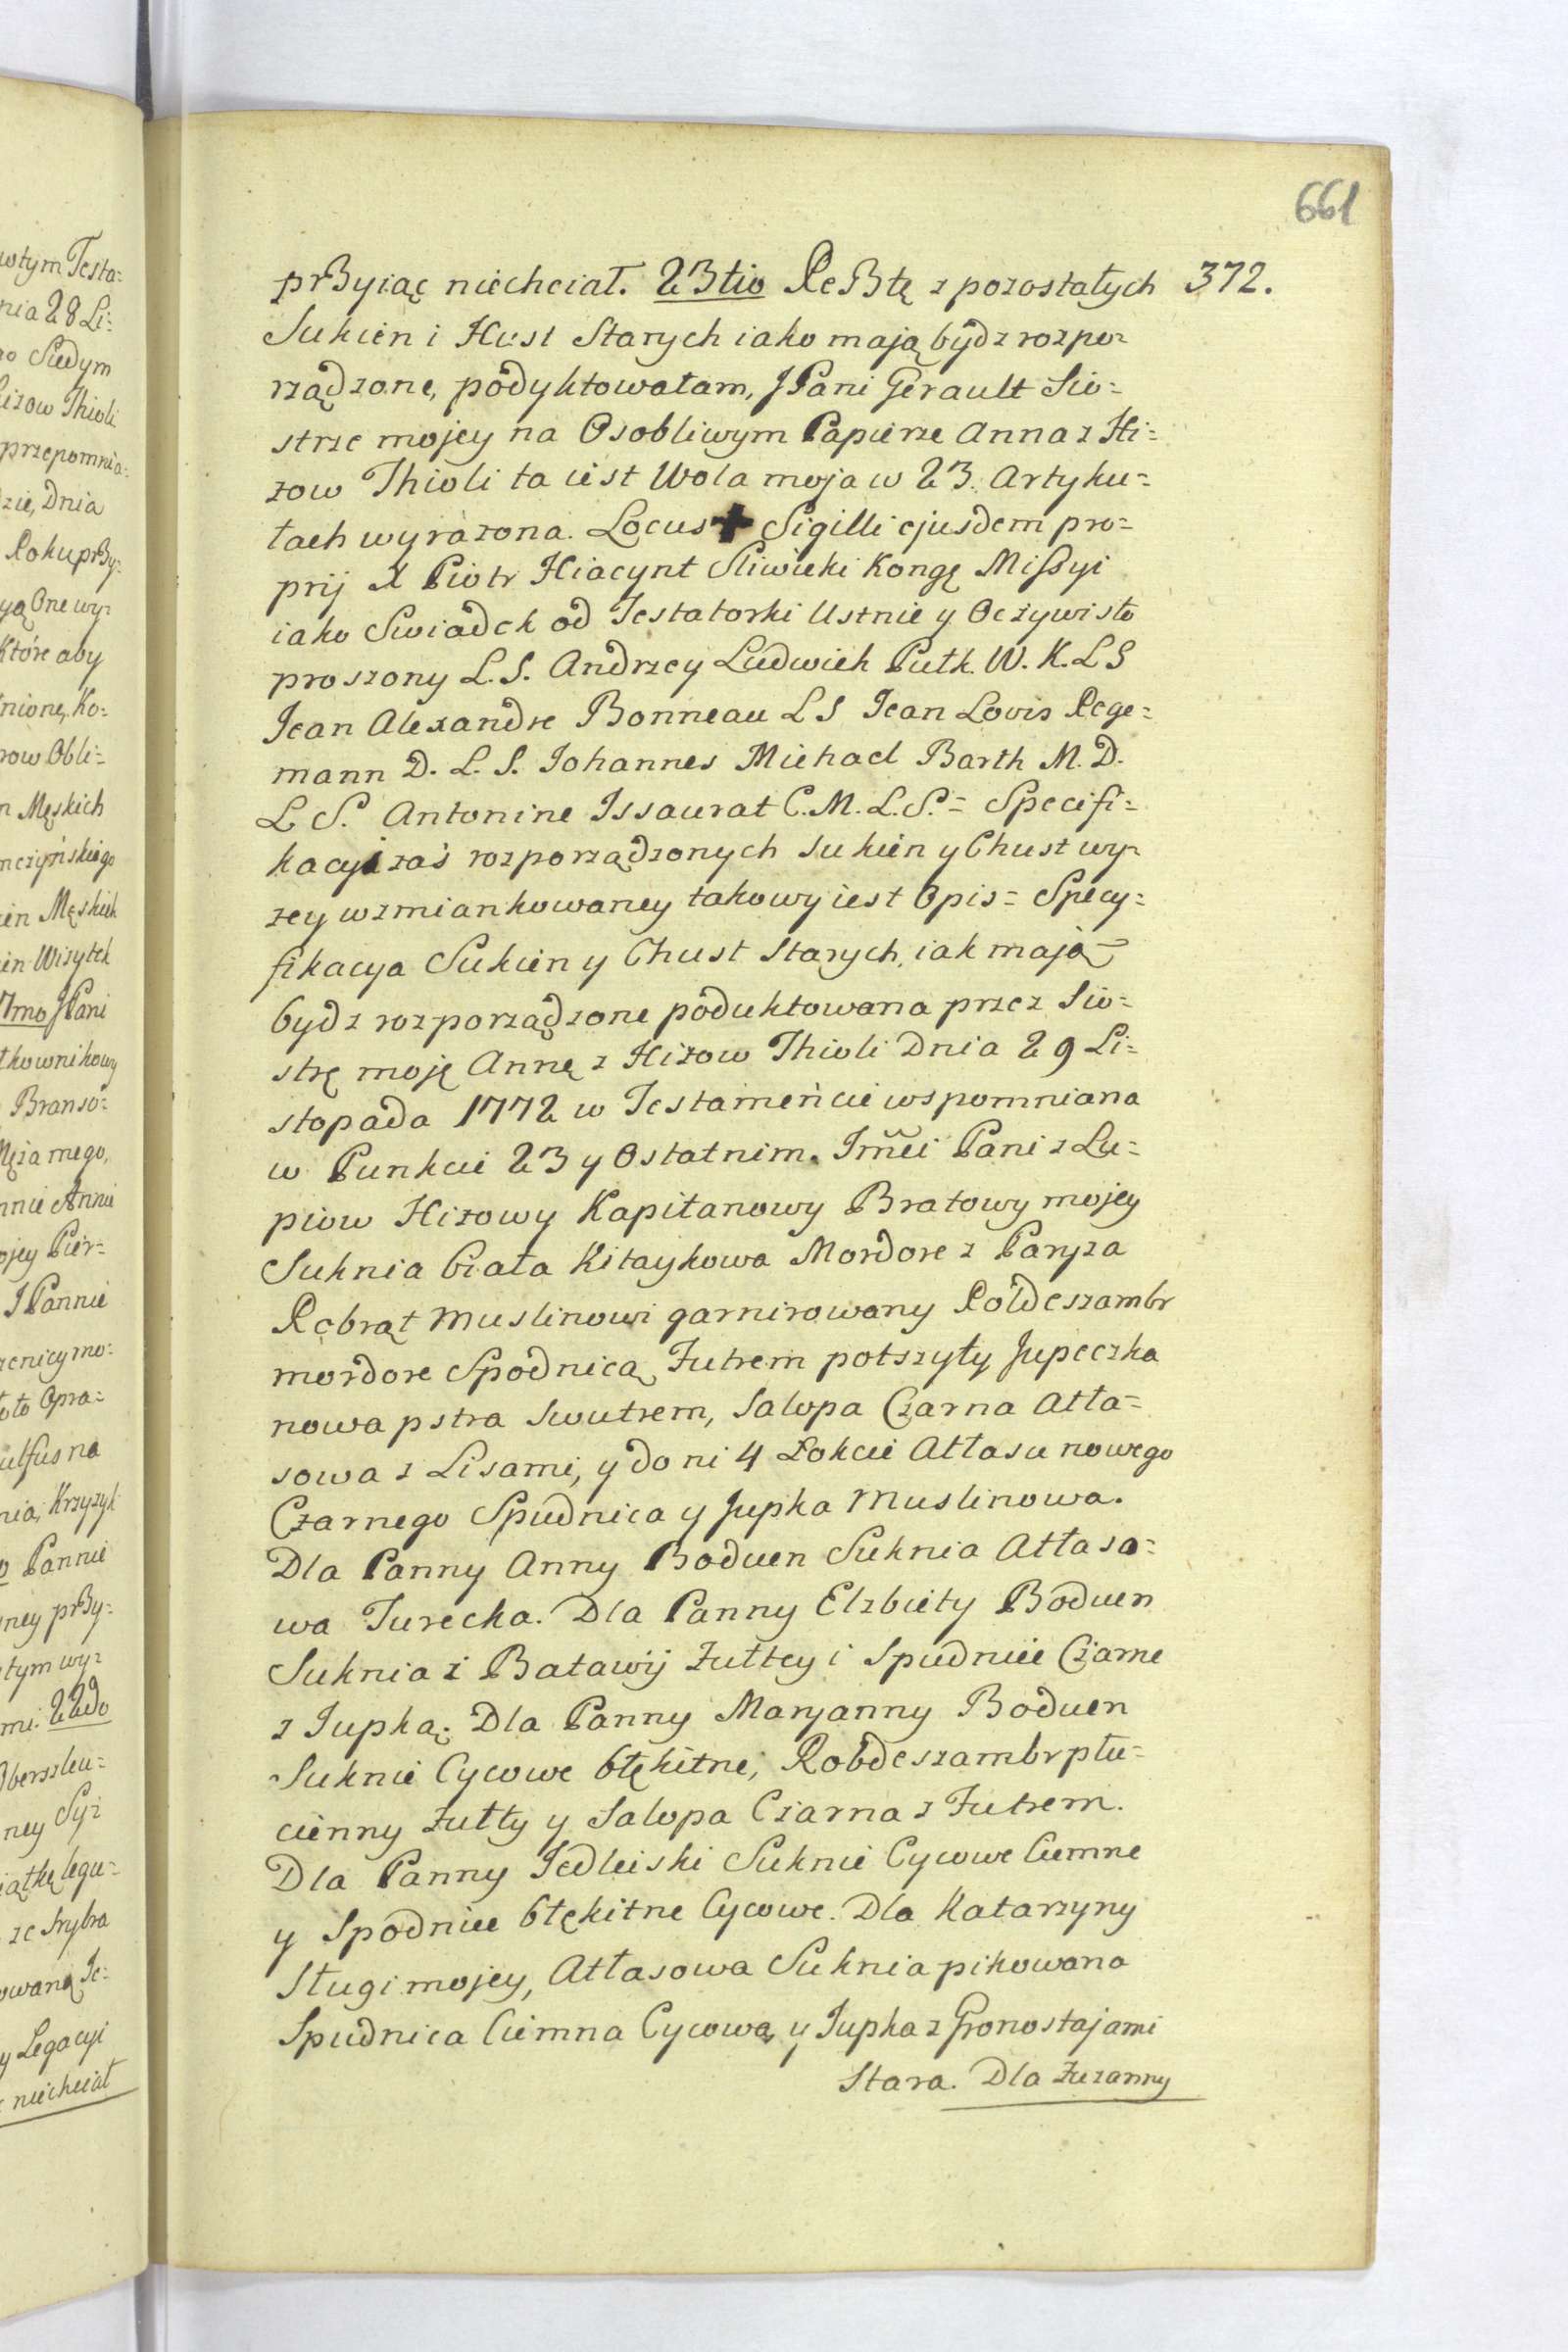 661
przyiąc niechciał. 23tio Resztę z pozostałych 372.
Sukien i Hust Starych iako mają bydz rozpo=
rządzone, podyktowałam, JPani Gerault Sio=
strze mojey na Osobliwym Papierze Anna z Hi=
żow Thioli ta iest Wola moja w 23. Artyku=
łach wyrażona. Locus ✚ Sigilli ejusdem pro=
prij X Piotr Hiacynt Sliwicki Kongę Missyi
iako Swiadek od Testatorki Ustnie y Oczywisto
proszony L.S. Andrzey Ludwich Pułk. W. K. L S
Jean Alexandre Bonneau L S Jean Lovis Rege=
mann D. L. S. Johannes Michael Barth M. D.
L S. Antonine Issaurat C. M. L. S. = Specifi=
kacyi zaś rozporządzonych sukien y Chust wy=
zey wzmiankowaney takowy iest Opis = Specy=
fikacya Sukien y Chust Starych, iak mają
bydz rozporządzone poduktowana przez Sio=
strę moję Annę z Hiżow Thioli Dnia 29 Li=
stopada 1772 w Testamencie wspomniana
w Punkcie 23 y Ostatnim. Imci Pani z Lu=
piow Hiżowy Kapitanowy Bratowy mojey
Suknia biała Kitaykowa Mordore z Paryża
Rębrąt Muslinowi garnirowany Robdeszambr
mordore Spodnicą Futrem potszyły Jupeczka
nowa pstra swutrem, Salopa Czarna Atła=
sowa z Lisami, y do ni 4 Łokcie Atłasu nowego
Czarnego Spudnica y Jupka Muslinowa.
Dla Panny Anny Boduen Suknia Atłaso=
wa Turecka. Dla Panny Elzbiety Boduen
Suknia z Batawij żułtey i Spudnice Czarne
z Jupką. Dla Panny Maryanny Boduen
Suknie Cycowe błękitne, Robdeszambr płu=
cienny żułty y Salopa Czarna z Futrem.
Dla Panny Jedleiski Suknie Cycowe Ciemne
y Spodnice błękitne Cycowe. Dla Katarzyny
Sługi mojey, Atłasowa Suknia pikowana
Spudnica Ciemna Cycowa, y Jupka z Gronostajami
Stara. Dla Zuzanny